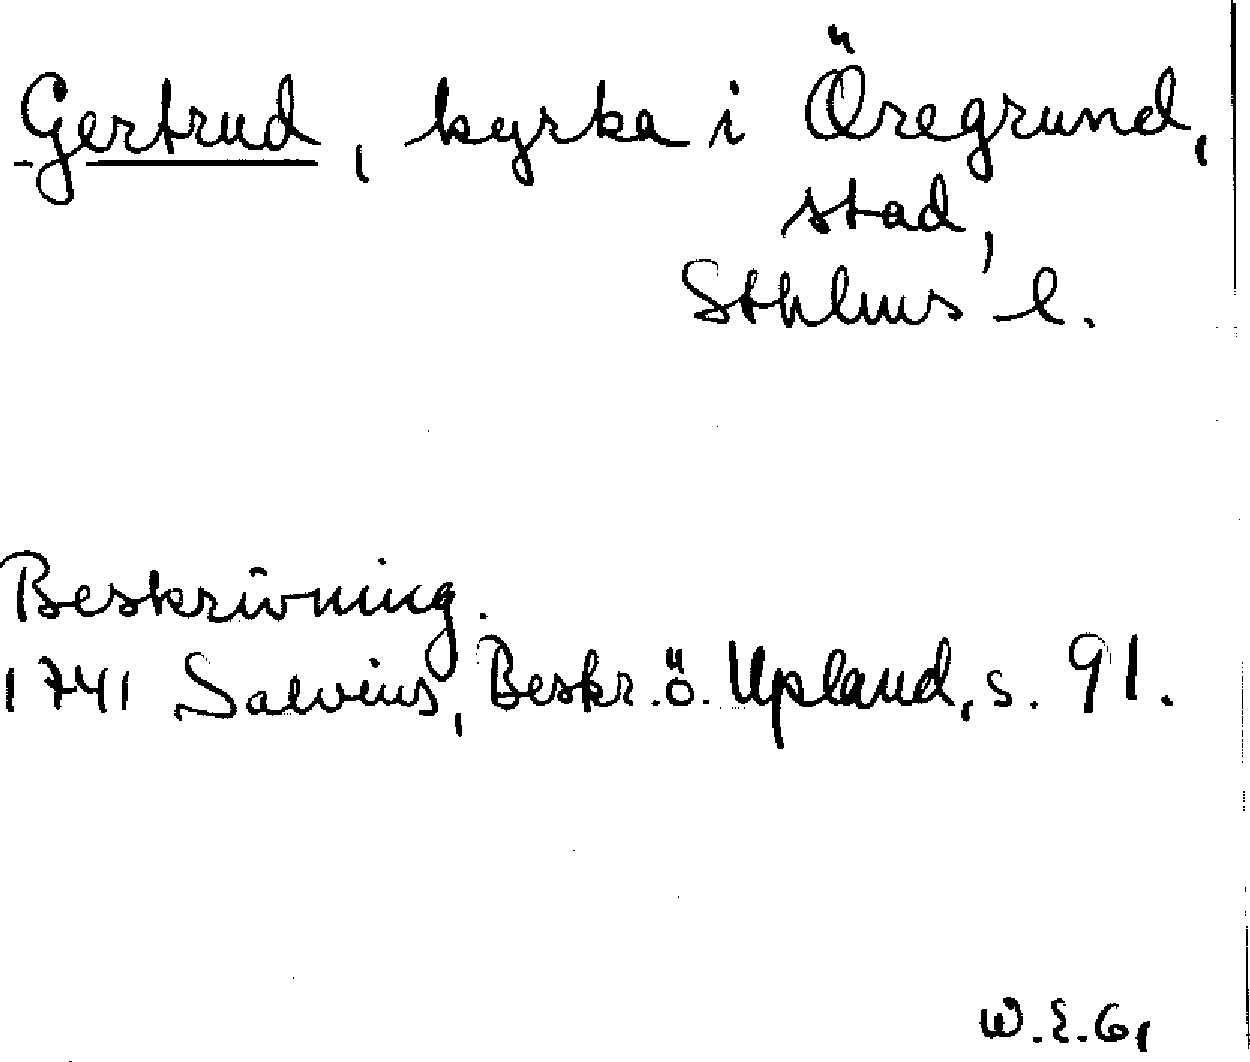 Gertrud, kyrka i Öregrund,
stad,
Sthlms l.
Beskrivning.
1741 Salvius, Beskr. ö. Upland, s. 91.
W.E.G,